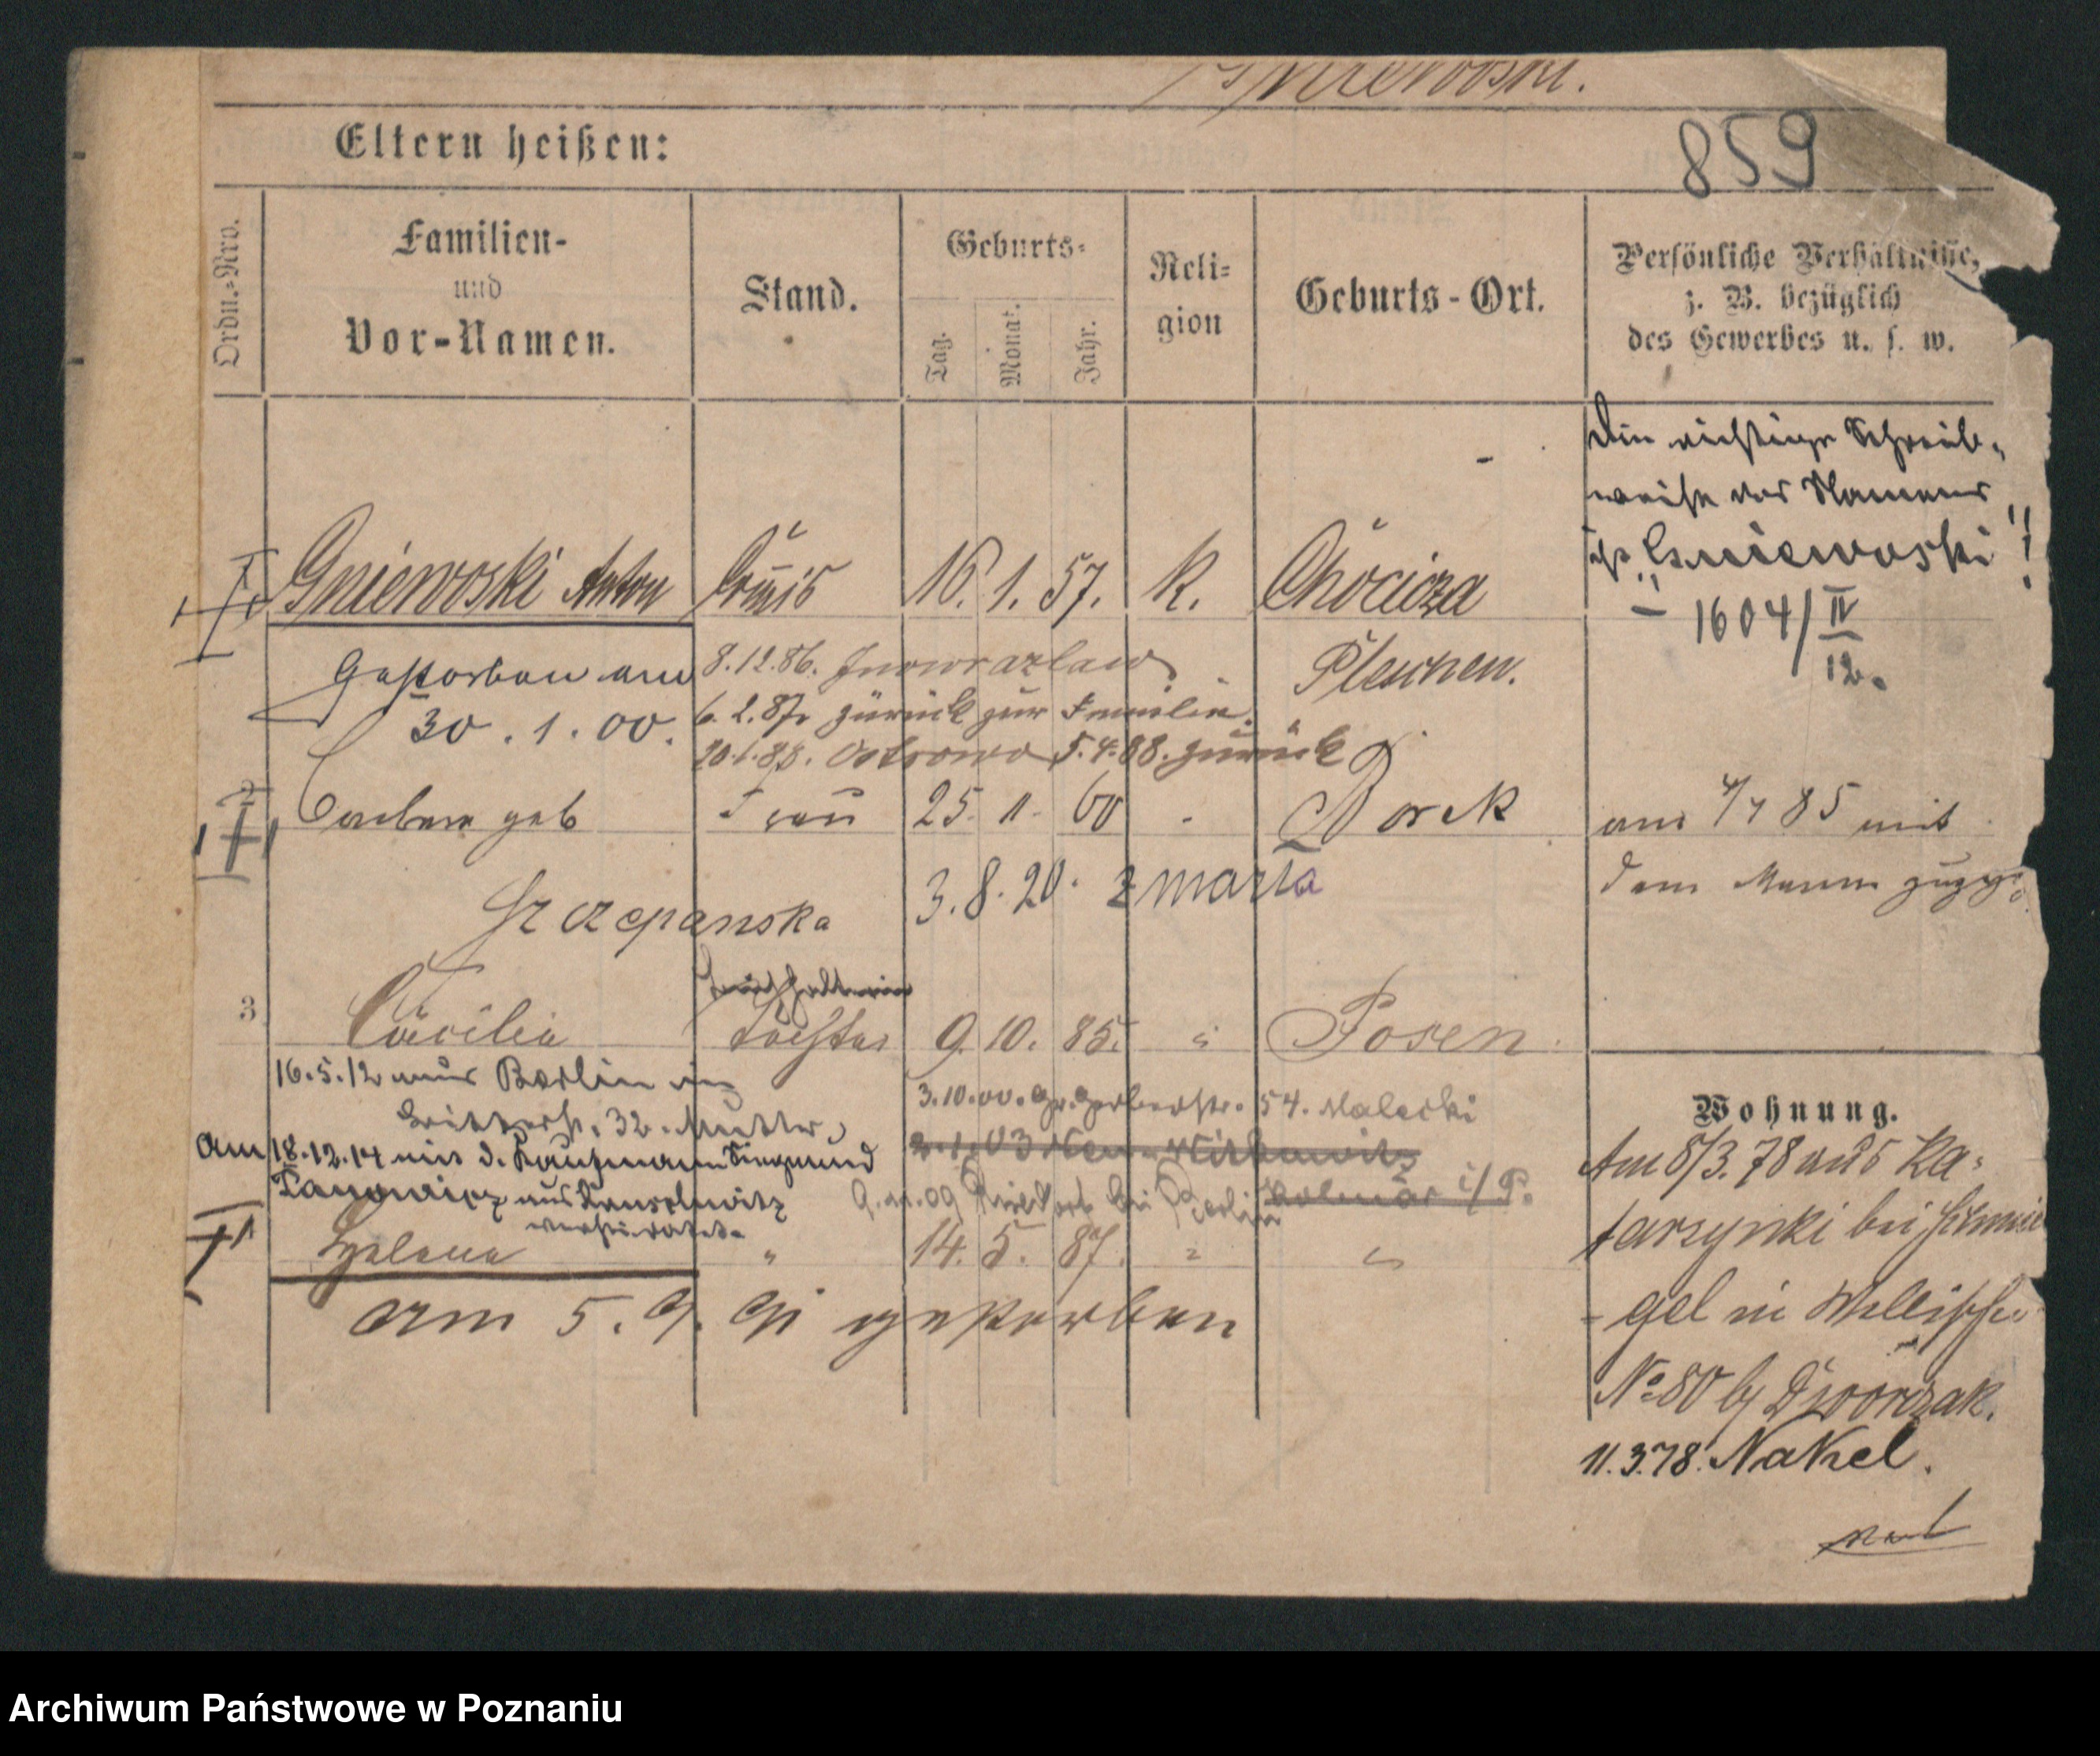 Gniewoski.
859
Eltern heißen:
Ordn.-Nro.
Familien-
und
Vor-Namen.
Stand.
Geburts-
Tag.
Monat.
Jahr.
Reli-
gion
Geburts-Ort.
Persönliche Verhältnisse,
z. B. bezüglich
des Gewerbes u. s. w.
Die richtige Schreib-
weise des Namens
ist "Gniewoski"!
1604/IV
12.
1 Gniewoski Anton Comis 16. 1. 57. K. Chocicza
Pleschen.
Gestorben am
30. 1. 00.
8.12.86. Inowrazlaw
6.2.87 zurück zur Familie.
20.1.88. Ostrowo 5.4.88. zurück
2 Barbara geb Frau 25. 11. 60 Borek
am 4/7 85 mit
dem Mann zugez.
Szczepanska
3.8.20. zmarła
3 Cäcilia Tochter 9. 10. 85. " Posen.
16.5.12 aus Berlin in
Ritterstr. 32. Mutter,
am 18.12.14 mit d. Kaufmann Siegmund
aus
verheiratet.
3.10.00. Gr. Gerberstr. 54. Malecki
2.1.03
Kolmar i/P.
9. 11. 09 bei Berlin
Helena " 14. 5. 87. " "
am 5. 9. 91 gestorben
Wohnung.
Am 8/3. 78 aus Ka-
tarzynki bei Schmie
-gel in Wallischei
No 80 b/ Dworczak.
11.3.78. Nakel.
Archiwum Państwowe w Poznaniu